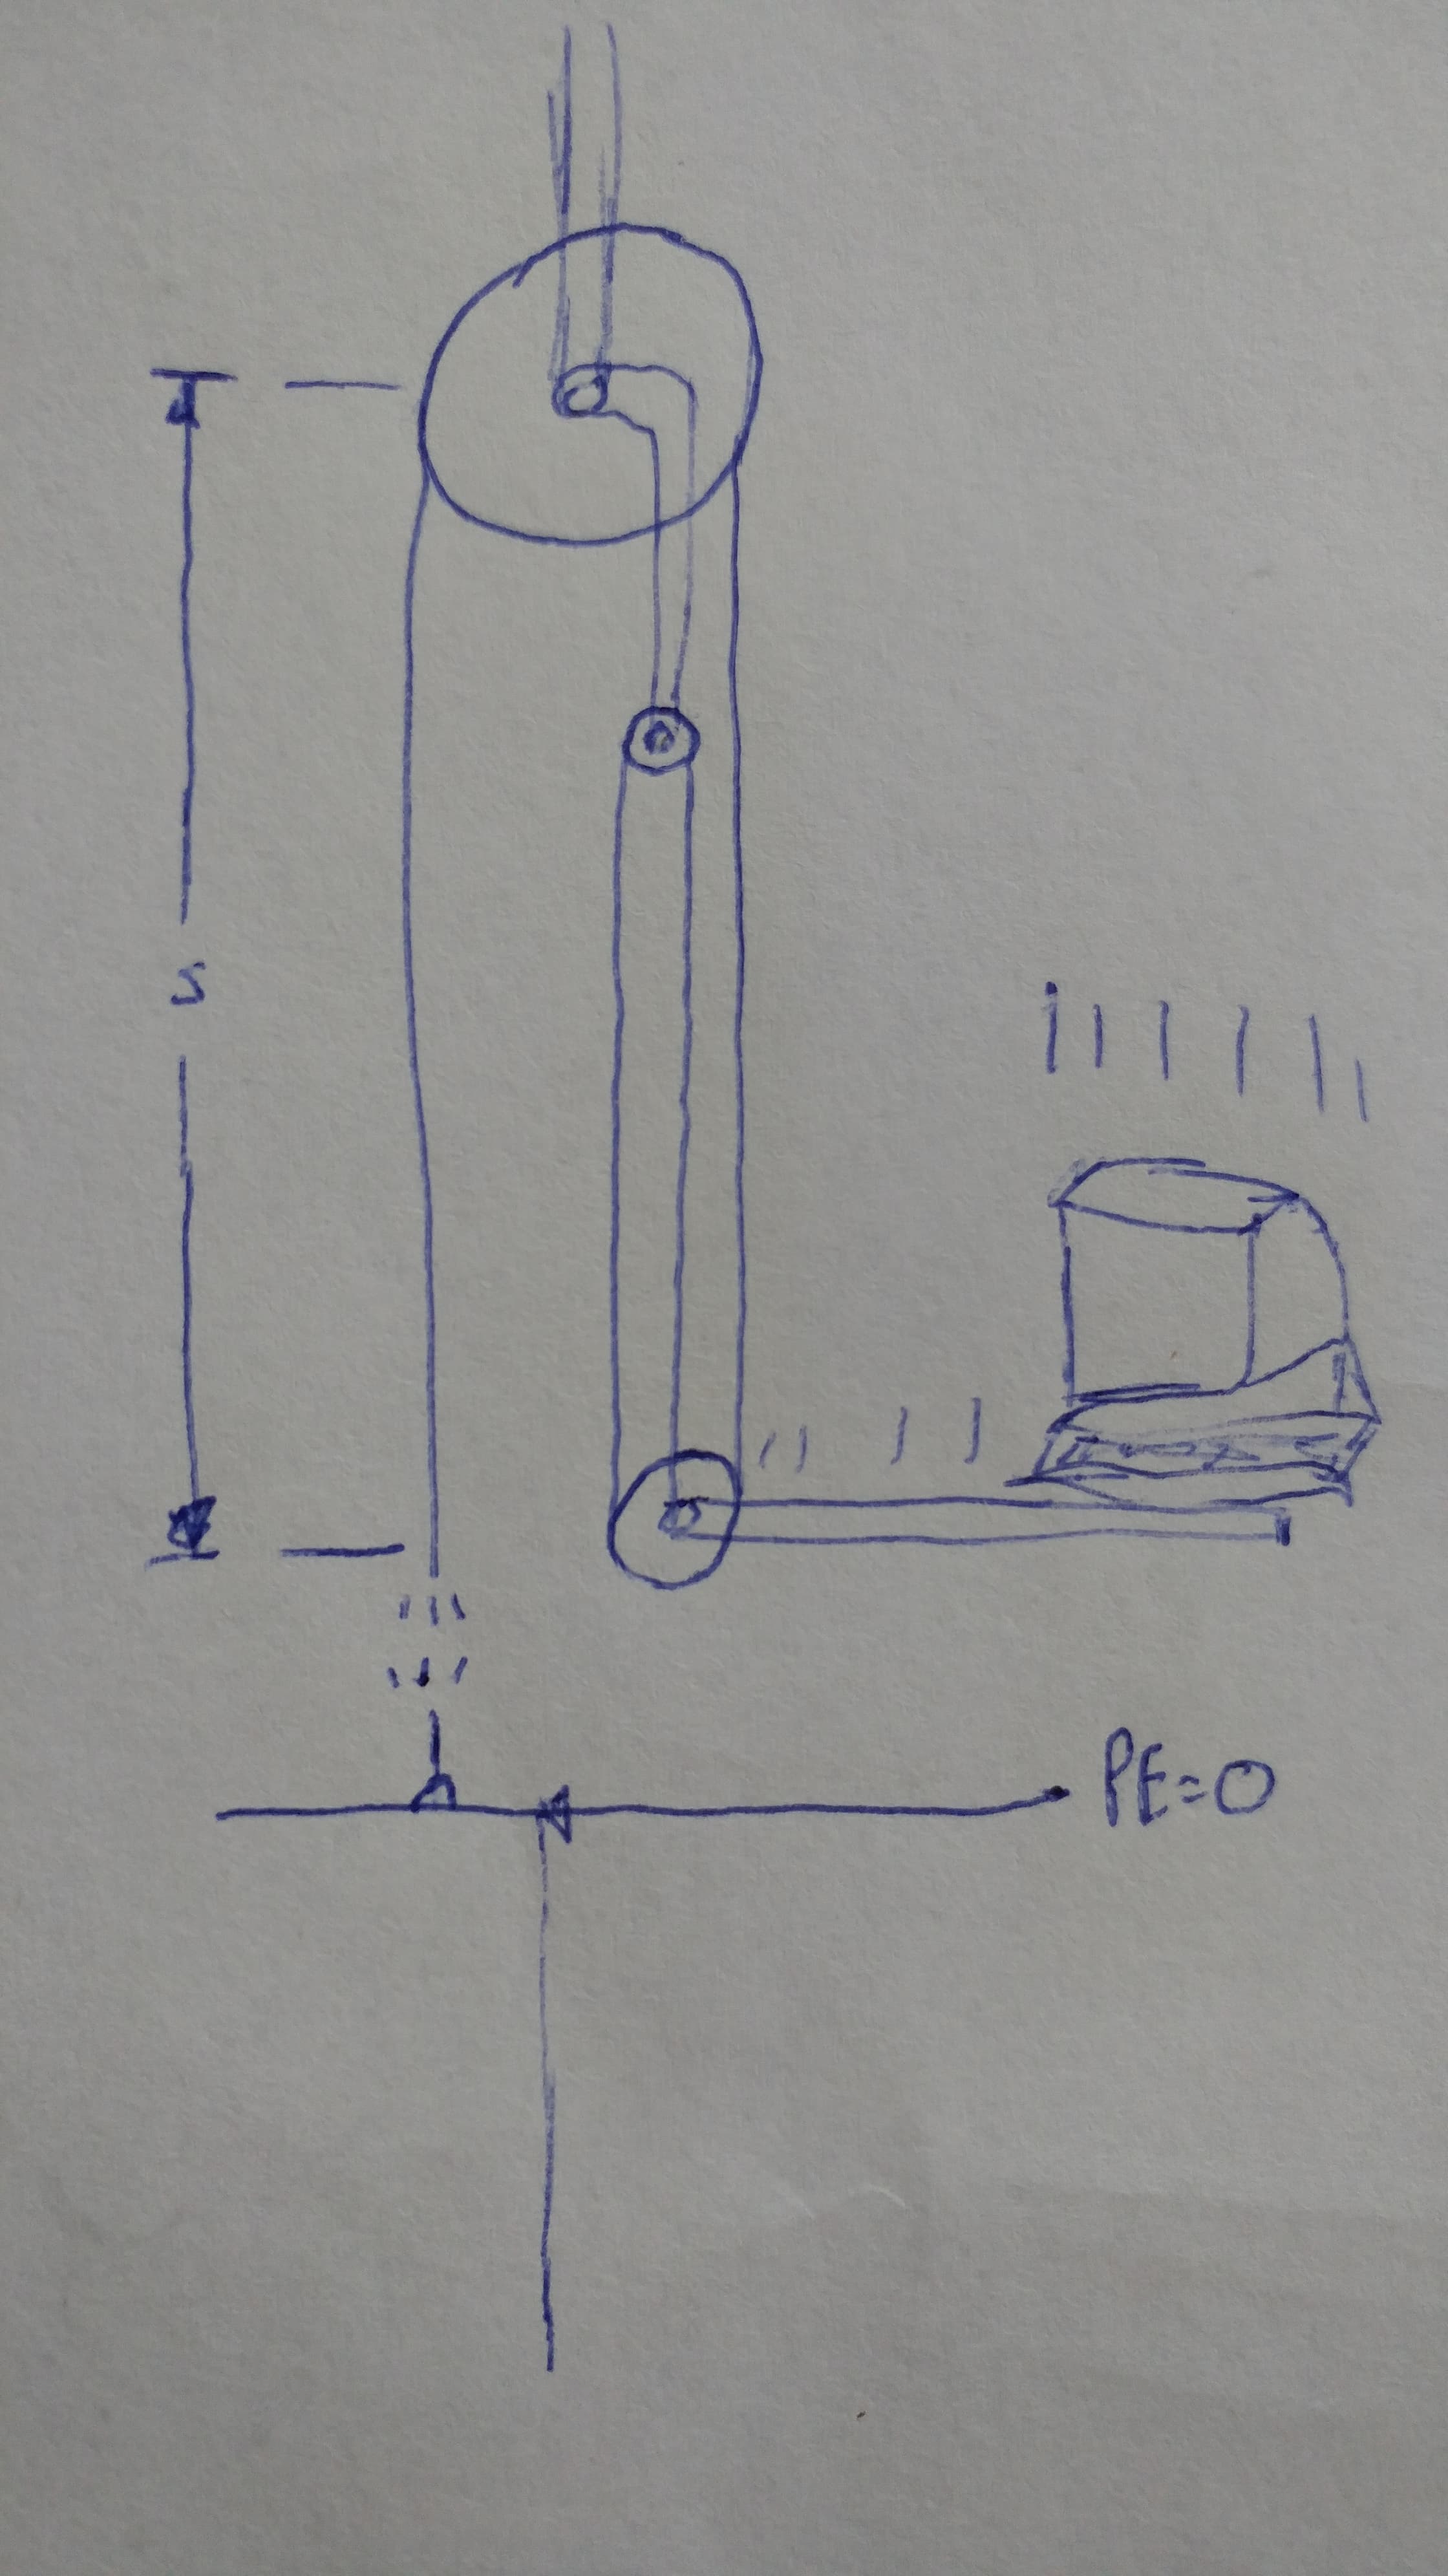 s
PE=0